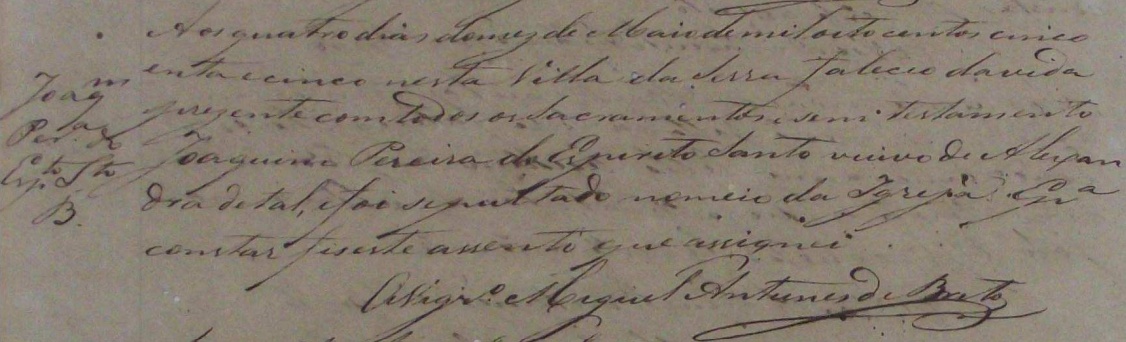 Aos quatro dias do mez de Maio de mil oito centos cinco
enta e cinco nesta Villa da Serra faleceo da vida
prezente com todos os Sacramentos, e sem testamento
Joaquim Pereira do Espirito Santo viuvo de Alexan
dra de tal, e foi sepultado no meio da Igreja. E pª
constar fis este assento que assignei.
O Vigrº Miguel Antunes de Brito
Joaqm
Perª do
Espto Sto
B.